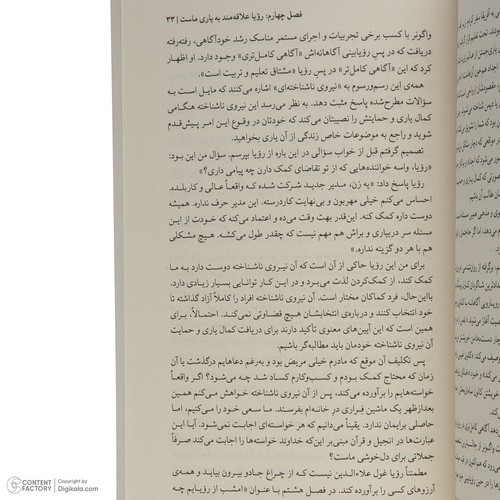 فصل چهارم: رؤیا علاقه‌مند به یاری ماست | ۲۳
واگونر با کسب برخی تجربیات و اجرای مستمر مناسک رشد خودآگاهی، رفته‌رفته
دریافت که در پسِ رؤیابینی آگاهانه‌اش «آگاهی کامل‌تری» وجود دارد. او اظهار
کرد که این «آگاهی کامل‌تر» در پسِ رؤیا «مشتاق تعلیم و تربیت است».
همه‌ی این رسم‌ورسوم به «نیروی ناشناخته‌ای» اشاره می‌کنند که مایل است به
سؤالات مطرح‌شده پاسخ مثبت دهد. به نظر می‌رسد این نیروی ناشناخته هنگامی
کمال یاری و حمایتش را نصیبتان می‌کند که خودتان در وقوع این امر پیش‌قدم
شوید و راجع به موضوعات خاص زندگی از آن یاری بخواهید.
تصمیم گرفتم قبل از خواب سؤالی در این باره از رؤیا بپرسم. سؤال من این بود:
«رؤیا، واسه خواننده‌هایی که از تو تقاضای کمک دارن چه پیامی داری؟»
رؤیا پاسخ داد: «یه زن، مدیر جدید شرکت شده که واقعاً عالی و کاربلده.
احساس می‌کنم خیلی مهربون و بی‌نهایت کاردرسته. این مدیر حرف نداره. همیشه
دوست داره کمک کنه. این‌قدر بهت وقت می‌ده و اعتماد می‌کنه که خودت از این
مسئله سر دربیاری و براش هم مهم نیست که چقدر طول می‌کشه. هیچ مشکلی
هم با هر دو گزینه نداره.»
برای من این رؤیا حاکی از آن است که آن نیروی ناشناخته دوست دارد به ما
کمک کند، از کمک‌کردن لذت می‌برد و در این کار توانایی بسیار زیادی دارد.
بااین‌حال، فرد کماکان مختار است. آن نیروی ناشناخته افراد را کاملاً آزاد گذاشته تا
خود انتخاب کنند و درباره‌ی انتخابشان هیچ قضاوتی نمی‌کند. احتمالاً، برای
همین است که این آیین‌های معنوی تأکید دارند برای دریافت کمال یاری و حمایت
آن نیروی ناشناخته خودمان باید مطالبه‌گر باشیم.
پس تکلیف آن موقع که مادرم خیلی مریض بود و به‌رغم دعاهایم درگذشت یا آن
زمان که محتاج کمک بودم و کسب‌وکارم کساد شد چه می‌شود؟ اگر واقعاً
خواسته‌هایم را برآورده می‌کند، پس از آن نیروی ناشناخته خواهش می‌کنم همین
بعدازظهر یک ماشین فراری درِ خانه‌ام بفرستد. ما سعی خود را می‌کنیم، اما
حاصلی برایمان ندارد. یقیناً دانیم که هر خواسته‌ای اجابت نمی‌شود. آیا این
عبارت‌ها در انجیل و قرآن مبنی‌بر این‌که خداوند خواسته‌ها را اجابت می‌کند صرفاً
جملاتی برای دل‌خوشی ماست؟
مطمئناً رؤیا غول علاءالدین نیست که از چراغ جادو بیرون بیاید و همه‌ی
آرزوهای کسی را برآورده کند. در فصل هشتم با عنوان «امشب از رؤیایم چه
CONTENT FACTORY
Copyright by
Digikala.com